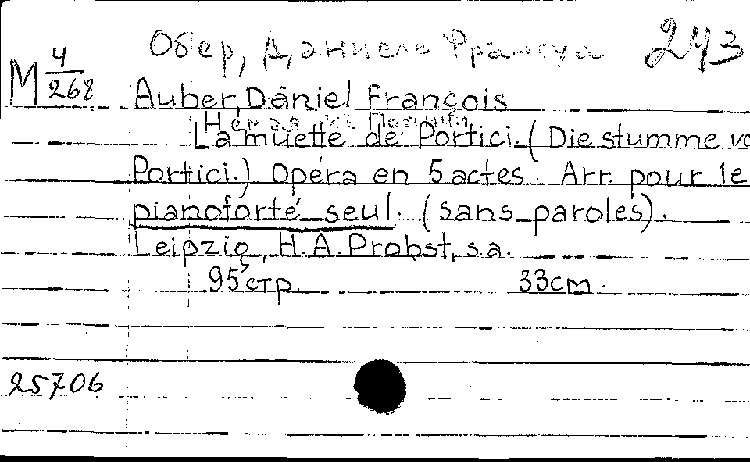 Обер, Даниель Франсуа 243
М 4/268
Auber, Daniel François
La muette de Portici. (Die stumme vo
Portici.) Opéra en 5 actes. Arr. pour le
pianoforte seul. (sans paroles).
Leipzig, H. A. Probst, s.a.
95 стр. 33 см.
25706